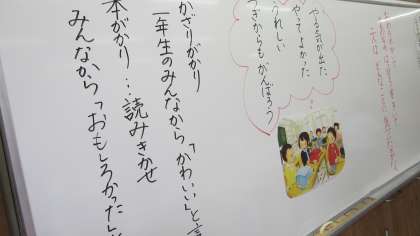 やる気が出た
やってよかった
うれしい
つぎからもがんばろう
かざりがかり
一年生のみんなから「かわいい」と言
本がかり…読みきかせ
みんなから「おもしろかった」